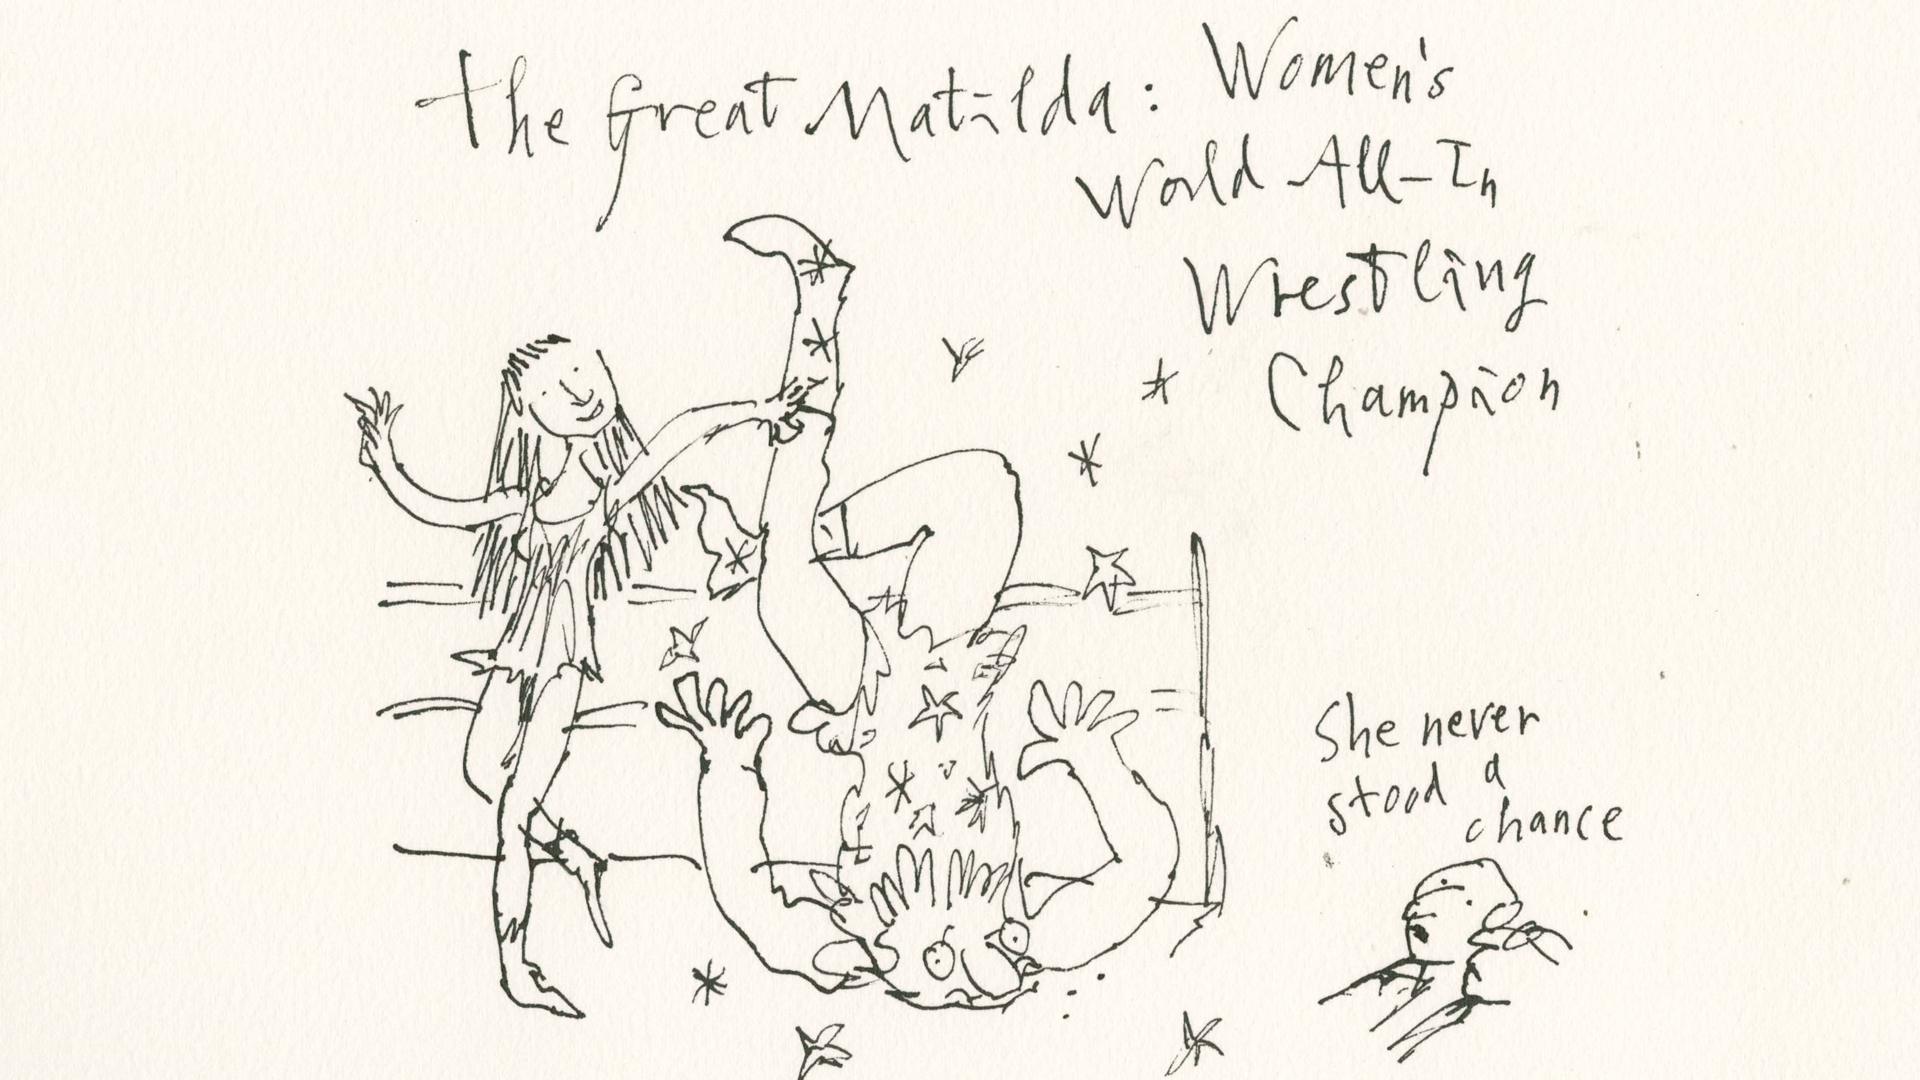 The Great Matilda: Women's
World All-In
Wrestling
Champion
She never
stood a
chance